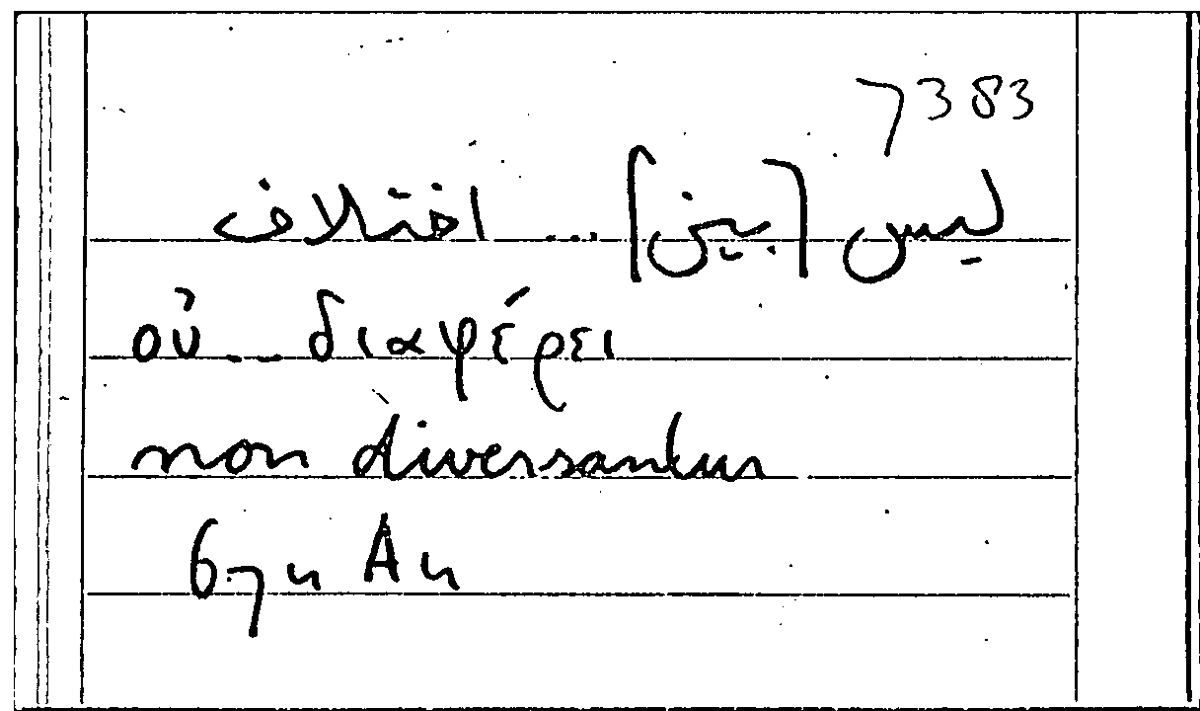 7383
ليس [بين] ... اختلاف
οὐ ... διαφέρει
non diversantur